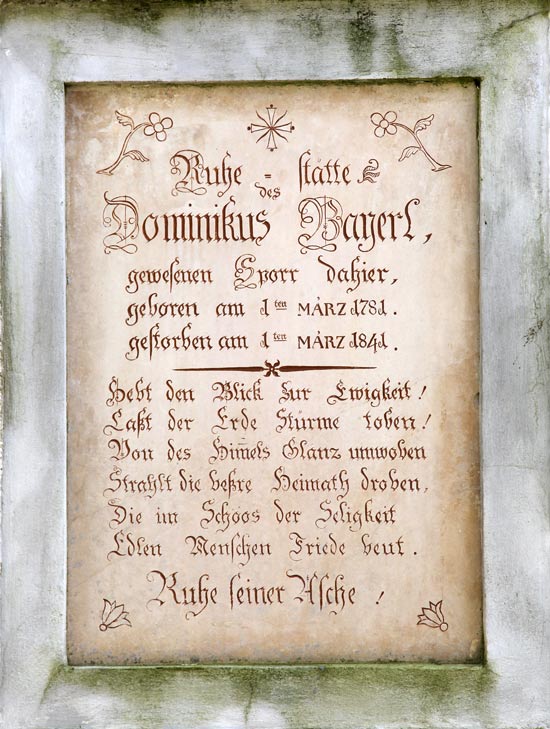 Ruhe = stätte
des
Dominikus Bayerl,
gewesenen Sporr dahier,
geboren am 1ten MÄRZ 1781.
gestorben am 1ten MÄRZ 1841.
Hebt den Blick zur Ewigkeit!
Laßt der Erde Stürme toben!
Von des Him̅els Glanz umwoben
Strahlt die beßre Heimath droben,
Die im Schoos der Seligkeit
Edlen Menschen Friede beut.
Ruhe seiner Asche!